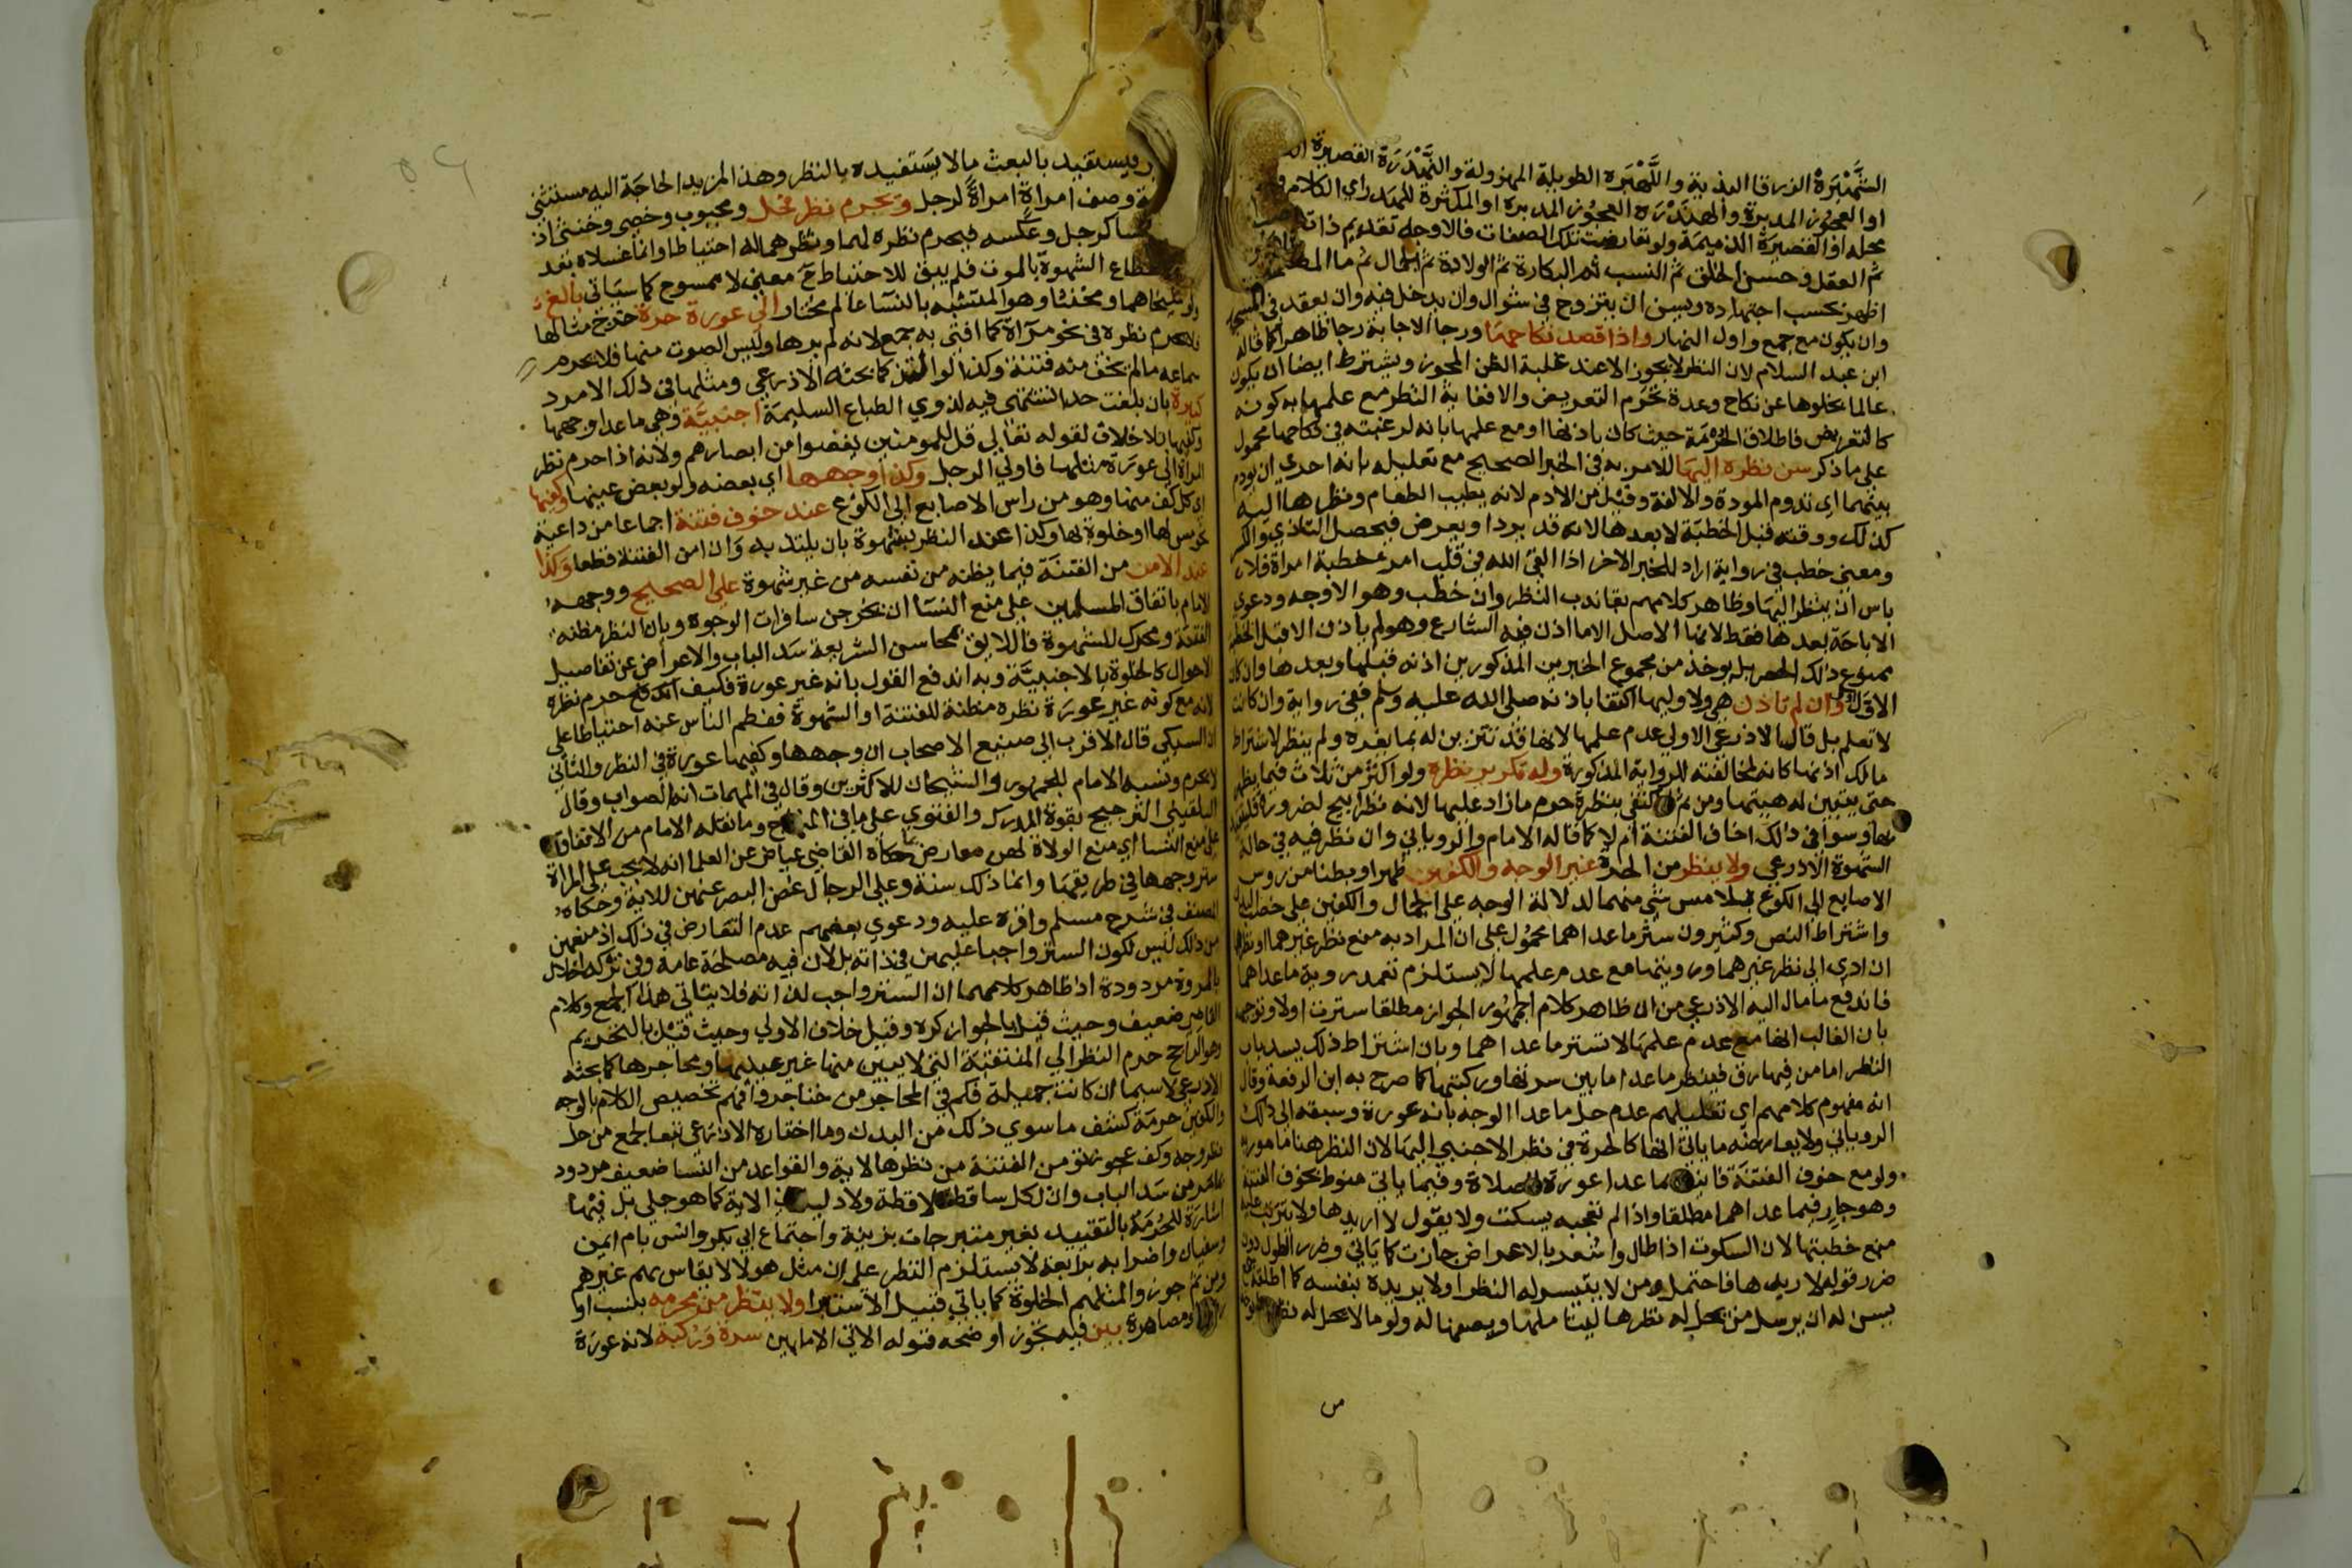 الشَّهْبَرَةُ الزرقا البذية واللَّهْبَرَه الطويلة المهزولة والنَّهْبَرَة القصيرة
او العجوز المدبرة والهَنْدَرَه العجوز المدبره او المكثرة للهذر اي الكلام
محله او القصيرة الذميمة ولو تعارضت تلك الصفات فالاوجه تقديم ذات
ثم العقل وحسن الخلق ثم النسب ثم البكارة ثم الولادة ثم الجمال ثم ما المصلحة
اظهر بحسب اجتهاده ويسن ان يتزوج في شوال وان يدخل فيه وان يعقد في المسجد
وان يكون مع جمع واول النهار واذا قصد نكاحها ورجا الاجابة رجا ظاهرا كما قاله
ابن عبد السلام لان النظر لا يجوز الا عند غلبة الظن المجوز ويشترط ايضا ان يكون
عالما بخلوها عن نكاح وعدة تحرم التعريض والا فغاية النظر مع علمها به كونه
كالتعريض فاطلاق الحرمة حيث كان باذنها او مع علمها بانه لرغبته في نكاحها محمول
على ما ذكر سن نظره اليها للامر به في الخبر الصحيح مع تعليله بانه احرى ان يودم
بينهما اي تدوم المودة والالفة وقيل من الادم لانه يطيب الطعام ونظرها اليه
كذلك ووقته قبل الخطبة لا بعدها لانه قد يردا ويعرض فيحصل التاذي والكسر
ومعنى خطب في رواية اراد للخبر الاخر اذا القى الله في قلب امرئ خطبة امراة فلا
باس ان ينظر اليها وظاهر كلامهم بقا ندب النظر وان خطب وهو الاوجه ودعوى
الاباحة بعدها فقط لانها الاصل الا ما اذن فيه الشارع وهو لم ياذن الا قبل الخطبة
ممنوع ذلك الحصر بل يوخذ من مجموع الخبرين المذكورين اذنه قبلها وبعدها وان كان
الاول اولى وان لم تاذن هي ولا وليها اكتفا باذنه صلى الله عليه وسلم ففي رواية وان كانت
لا تعلم بل قال الاذرعي الاولى عدم علمها لانها قد تتزين له بما يغره ولم ينظر لاشتراط
مالك اذنها كانه لمخالفته للرواية المذكورة وله تكرير نظره ولو اكثر من ثلاث فيما يظهر
حتى يتبين له هيئتها ومن ثم لو اكتفى بنظرة حرم ما زاد عليها لانه نظر ابيح لضرورة فليتقيد
بها وسوا في ذلك اخاف الفتنة ام لا كما قاله الامام والروياني وان نظر فيه في حالة
الشهوة الاذرعي ولا ينظر من الحرة غير الوجه والكفين ظهرا وبطنا من روس
الاصابع الى الكوع بلا مس شي منهما لدلالة الوجه على الجمال والكفين على خصب البدن
واشتراط النص وكثيرون ستر ما عداهما محمول على ان المراد به منع نظر غيرهما او نظرهما
ان ادى الى نظر غيرهما ورويتهما مع عدم علمها لا يستلزم تعمد روية ما عداهما
فاندفع ما مال اليه الاذرعي من ان ظاهر كلام الجمهور الجواز مطلقا سترت او لا وتوجيهه
بان الغالب انها مع عدم علمها لا تستر ما عداهما وبان اشتراط ذلك يسد باب
النظر اما من فيها رق فينظر ما عدا ما بين سرتها وركبتها كما صرح به ابن الرفعة وقال
انه مفهوم كلامهم اي تعليلهم عدم حل ما عدا الوجه بانه عورة وسبقه الى ذلك
الروياني ولا يعارضه ما ياتي انها كالحرة في نظر الاجنبي اليها لان النظر هنا مامور به
ولو مع خوف الفتنة فانيط بما عدا عورة الصلاة وفيما ياتي منوط بخوف الفتنة
وهو جار فيما عداهما مطلقا واذا لم تعجبه يسكت ولا يقول لا اريدها ولا يترتب عليه
منع خطبتها لان السكوت اذا طال واشعر بالاعراض جازت كما ياتي وضرر الطول دون
ضرر قوله لا اريدها فاحتمل ومن لا يتيسر له النظر او لا يريده بنفسه كما اطلقه
يسن له ان يرسل من يحل له نظرها ليتاملها ويصفها له ولو ما لا يحل له نظره
من
ويستفيد بالبعث ما لا يستفيده بالنظر وهذا المزيد الحاجة اليه مستثنى
وصف امراةٍ امراةً لرجل ويحرم نظر فحل ومجبوب وخصي وخنثى اذ
كرجل وعكسه فيحرم نظره لهما ونظرهما له احتياطا وانما غسلاه بعد
انقطاع الشهوة بالموت فلم يبق للاحتياط ح معنى لا ممسوح كما سياتي بالغ
ولو شيخا هما ومخنثا وهو المتشبه بالنسا عاقل مختار الى عورة حرة خرج مثالها
فلا يحرم نظره في نحو مرآة كما افتى به جمع لانه لم يرها وليس الصوت منها فلا يحرم
سماعه ما لم يخف منه فتنة وكذا لو التذ كما بحثه الاذرعي ومثلها في ذلك الامرد
كبيرة بان بلغت حدا تشتهى فيه لذوي الطباع السليمة اجنبيَّة وهي ما عدا وجهها
وكفيها بلا خلاف لقوله تعالى قل للمومنين يغضوا من ابصارهم ولانه اذا حرم نظر
المراة الى عورة مثلها فاولى الرجل وكذا وجهها اي بعضه ولو بعض عينها وكفيها
اي كل كف منها وهو من راس الاصابع الى الكوع عند خوف فتنة اجماعا من داعية
نحو مس لها او خلوة بها وكذا عند النظر بشهوة بان يلتذ به وان امن الفتنة قطعا وكذا
عند الامن من الفتنة فيما يظنه من نفسه من غير شهوة على الصحيح ووجهه
الامام باتفاق المسلمين على منع النسا ان يخرجن سافرات الوجوه وبان النظر مظنة
الفتنة ومحرك للشهوة فاللايق بمحاسن الشريعة سد الباب والاعراض عن تفاصيل
الاحوال كالخلوة بالاجنبيَّة وبه اندفع القول بانه غير عورة فكيف حرم نظره
لانه مع كونه غير عورة نظره مظنة للفتنة او الشهوة ففطم الناس عنه احتياطا على
ان السبكي قال الاقرب الى صنيع الاصحاب ان وجهها وكفيها عورة في النظر والثاني
لا يحرم ونسبه الامام للجمهور والشيخان للاكثرين وقال في المهمات انه الصواب وقال
البلقيني الترجيح بقوة المدرك والفتوى على ما في المنهاج وما نقله الامام من الاتفاق
على منع النسا اي منع الولاة لهن معارض بما حكاه القاضي عياض عن العلما انه لا يجب على المراة
ستر وجهها في طريقها وانما ذلك سنة وعلى الرجال غض البصر عنهن للاية وحكاه
المصنف في شرح مسلم واقره عليه ودعوى بعضهم عدم التعارض في ذلك اذ منعهن
من ذلك ليس لكون الستر واجبا عليهن في ذاته بل لان فيه مصلحة عامة وفي تركه اخلال
بالمروة مردودة اذ ظاهر كلامهما ان الستر واجب لذاته فلا يتاتى هذا الجمع وكلام
القاضي ضعيف وحيث قيل بالجواز كره وقيل خلاف الاولى وحيث قيل بالتحريم
وهو الراجح حرم النظر الى المنتقبة التي لا يبين منها غير عينيها ومحاجرها كما بحثه
الاذرعي لا سيما ان كانت جميلة فكم في المحاجر من خناجر وافهم تخصيص الكلام بالوجه
والكفين حرمة كشف ما سوى ذلك من البدن وما اختاره الاذرعي تبعا لجمع من حل
نظر وجه وكف عجوز تؤمن الفتنة من نظرها لاية والقواعد من النسا ضعيف مردود
بما مر من سد الباب وان لكل ساقطة لاقطة ولا دليل في الاية كما هو جلي بل فيها
اشارة للحرمة بالتقييد بغير متبرجات بزينة واجتماع ابي بكر وانس بام ايمن
وسفيان واضرابه برابعة لا يستلزم النظر على ان مثل هولا لا يقاس بهم غيرهم
ومن ثم جوز والمثلهم الخلوة كما ياتي قبيل الاستبرا ولا ينظر من محرمه بنسب او
رضاع او مصاهرة بين فيه تجوز اوضحه قوله الاتي الا ما بين سرة وركبة لانه عورة